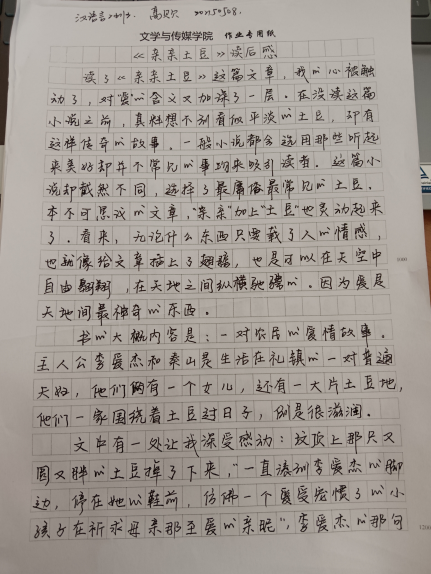 汉语言2班. 高欣
文学与传媒学院 作业专用纸
《亲亲土豆》读后感
读了《亲亲土豆》这篇文章，我的心被触
动了，对"爱"的含义又加深了一层。在没读这篇
小说之前，真的想不到看似平淡的土豆，却有
这样传奇的故事。一般小说都会选用那些听起
来美好却并不常见的事物来吸引读者。这篇小
说却截然不同，选择了最庸俗最常见的土豆。
本不可思议的文章，"亲亲"加上"土豆"也灵动起来
了。看来，无论什么东西只要载了人的情感，
也就像给文章插上了翅膀，也是可以在天空中
自由翱翔，在天地之间纵横驰骋的。因为爱是
天地间最神奇的东西。
书的大概内容是：一对农民的爱情故事。
主人公李爱杰和秦山是生活在礼镇的一对普通
夫妇，他们俩有一个女儿，还有一大片土豆地，
他们一家围绕着土豆过日子，倒是很滋润。
文中有一处让我深受感动：坟顶上那只又
圆又胖的土豆掉了下来，"一直滚到李爱杰的脚
边，停在她的鞋前，仿佛一个受宠惯了的小
孩子在祈求母亲那至爱的亲昵"，李爱杰的那句